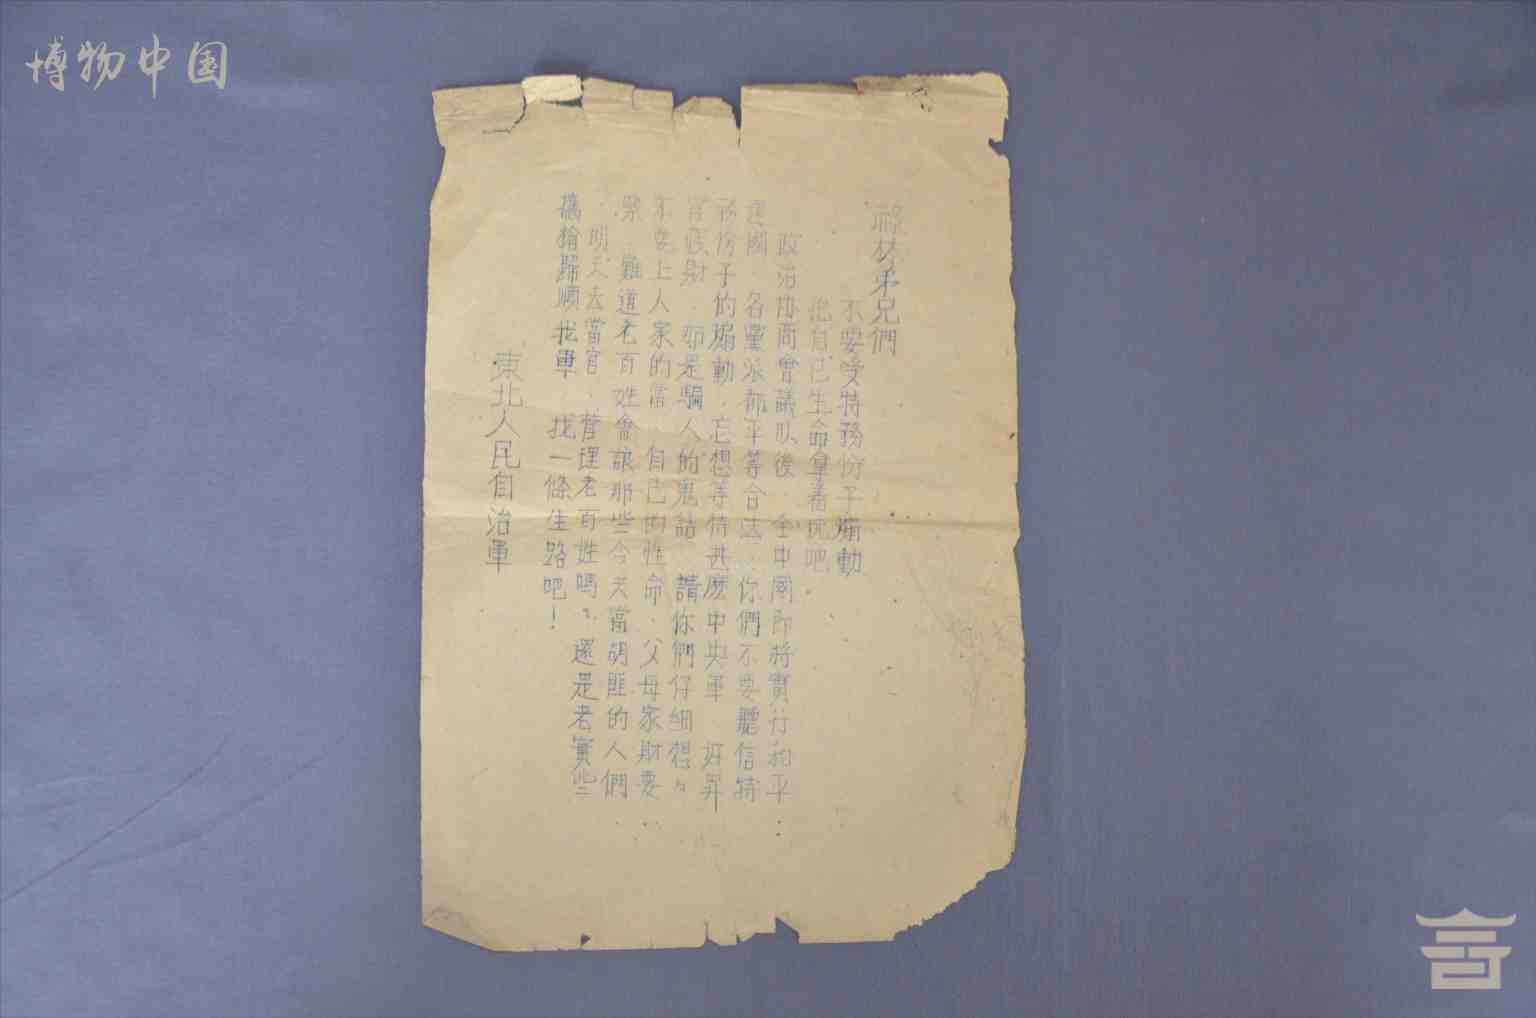 博物中国
綠林弟兄們
不要受特務份子煽動
把自己生命拿着玩吧
政治協商會議以後．全中國即將實行和平
建國．各黨派都平等合法．你們不要聽信特
務份子的煽動．忘想等待甚麼中央軍．好昇
官發財．都是騙人的鬼話．請你們仔細想々
不要上人家的當．自己的性命．父母家財要
緊．難道老百姓會讓那些今天當胡匪的人們
．明天去當官．管理老百姓嗎．還是老實些
攜槍歸順我軍．找一條生路吧！
東北人民自治軍